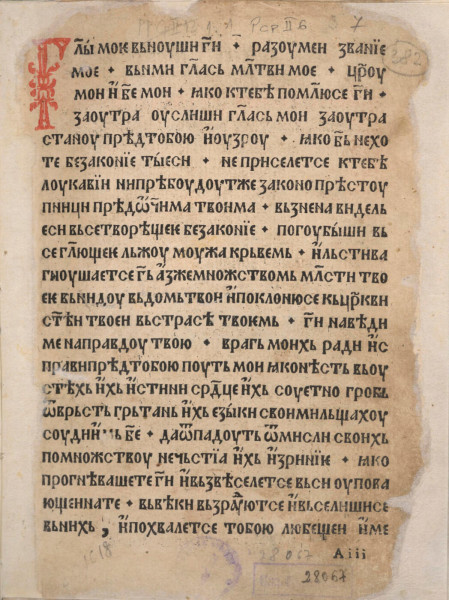 Гл҃ы мое вьноуши гн҃и · разоумен званїе
мое · вьнми глась мл҃твы мое · цр҃оу
мои и҆ б҃е мои · ꙗко ктебѣ помлюсе гн҃и ·
заоутра оуслиши глась мои заоутра
станоу прѣдтобою и҆оузроу · ꙗко б҃ь нехо
те безаконїе тыеси · не приселетсе ктебѣ
лоукавїи нипрѣбоудоутже законопрѣстоу
пници прѣдѡ҆чима твоима · вьзнена видель
еси вьсетворѣщеѥ безаконїе · погоубыши вь
се гл҃ющеѥ льжоу моужа крьвемь · и҆льстива
гноушаетсе гь҃ а҆зжемножствомь мл҃сти тво
ею вьнидоу вьдомьтвои и҆поклонюсе кьцр҃кви
ст҃ѣи твоеи вьстрасѣ твоемь · гн҃и навѣди
ме направдоу твою · врагь моихь ради и҆с
правипрѣдтобою поуть мои ꙗконѣсть вьоу
стѣхь и҆хь и҆стини срд҃це и҆хь соуетно гробь
ѿврьсть грьтань и҆хь езыки своимильщахоу
соуди имь б҃е · даѿпадоуть ѿмисли своихь
помножствоу нечьстїа и҆хь и҆зринїие · ꙗко
прогнѣвашете гн҃и и҆вьзвѣселетсе вьси оупова
ющеинате · вьвѣки вьзраꙋютсе и҆вьселишисе
вьнихь , и҆похвалетсе тобою любещеи и҆ме
Aiii
282
28067
28067